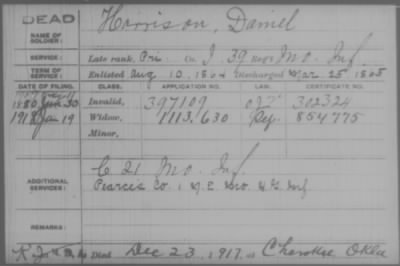 DEAD
Harrison, Daniel
NAME OF SOLDIER:
SERVICE: Late rank, Pri Co. I, 39 Reg't Mo. Inf.
TERM OF SERVICE: Enlisted Aug 13, 1864 Discharged Mar. 25, 1865
DATE OF FILING. CLASS. APPLICATION NO. LAW. CERTIFICATE NO.
1880 30 Invalid, 397109 302324
1918 Jan 19 Widow, 1113,630 854775
Minor,
ADDITIONAL SERVICES: C 21 Mo. Inf.
Pearces Co. 1 N.E. Mo. H.G. Inf
REMARKS:
Died Dec 23, 1917, at Cherokee Okla